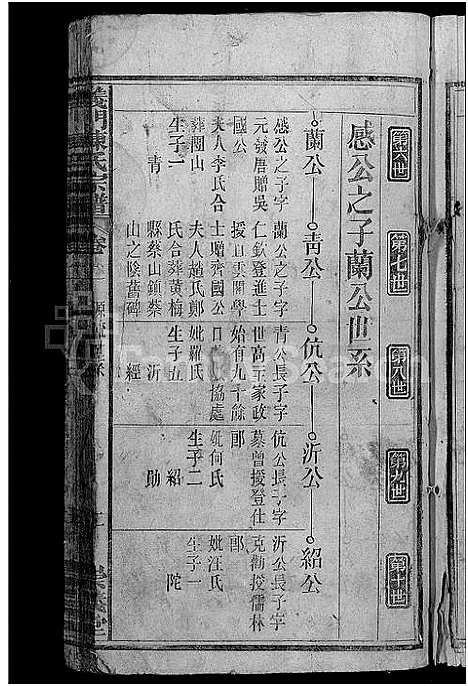 第六世
第七世
第八世
第九世
第十世
感公之子蘭公世系
蘭公
青公
伉公
沂公
紹公
感公之子字
元發唐贈吳
國公
夫人李氏合
葬團山
生子一
青
蘭公之子字
仁欽登進士
授直雲閣學
士贈齊國公
夫人趙氏鄭
氏合葬黃梅
縣蔡山鎮蔡
山之陰舊碑
青公長子字
世高主家政
始有九十餘
口 協處
妣羅氏
生子五
沂
經
伉公長子字
墓曾授登仕
郎
妣何氏
生子二
紹
勛
沂公長子字
克勤授儒林
郎
妣汪氏
生子一
陀
義門陳氏宗譜
卷
崇義堂